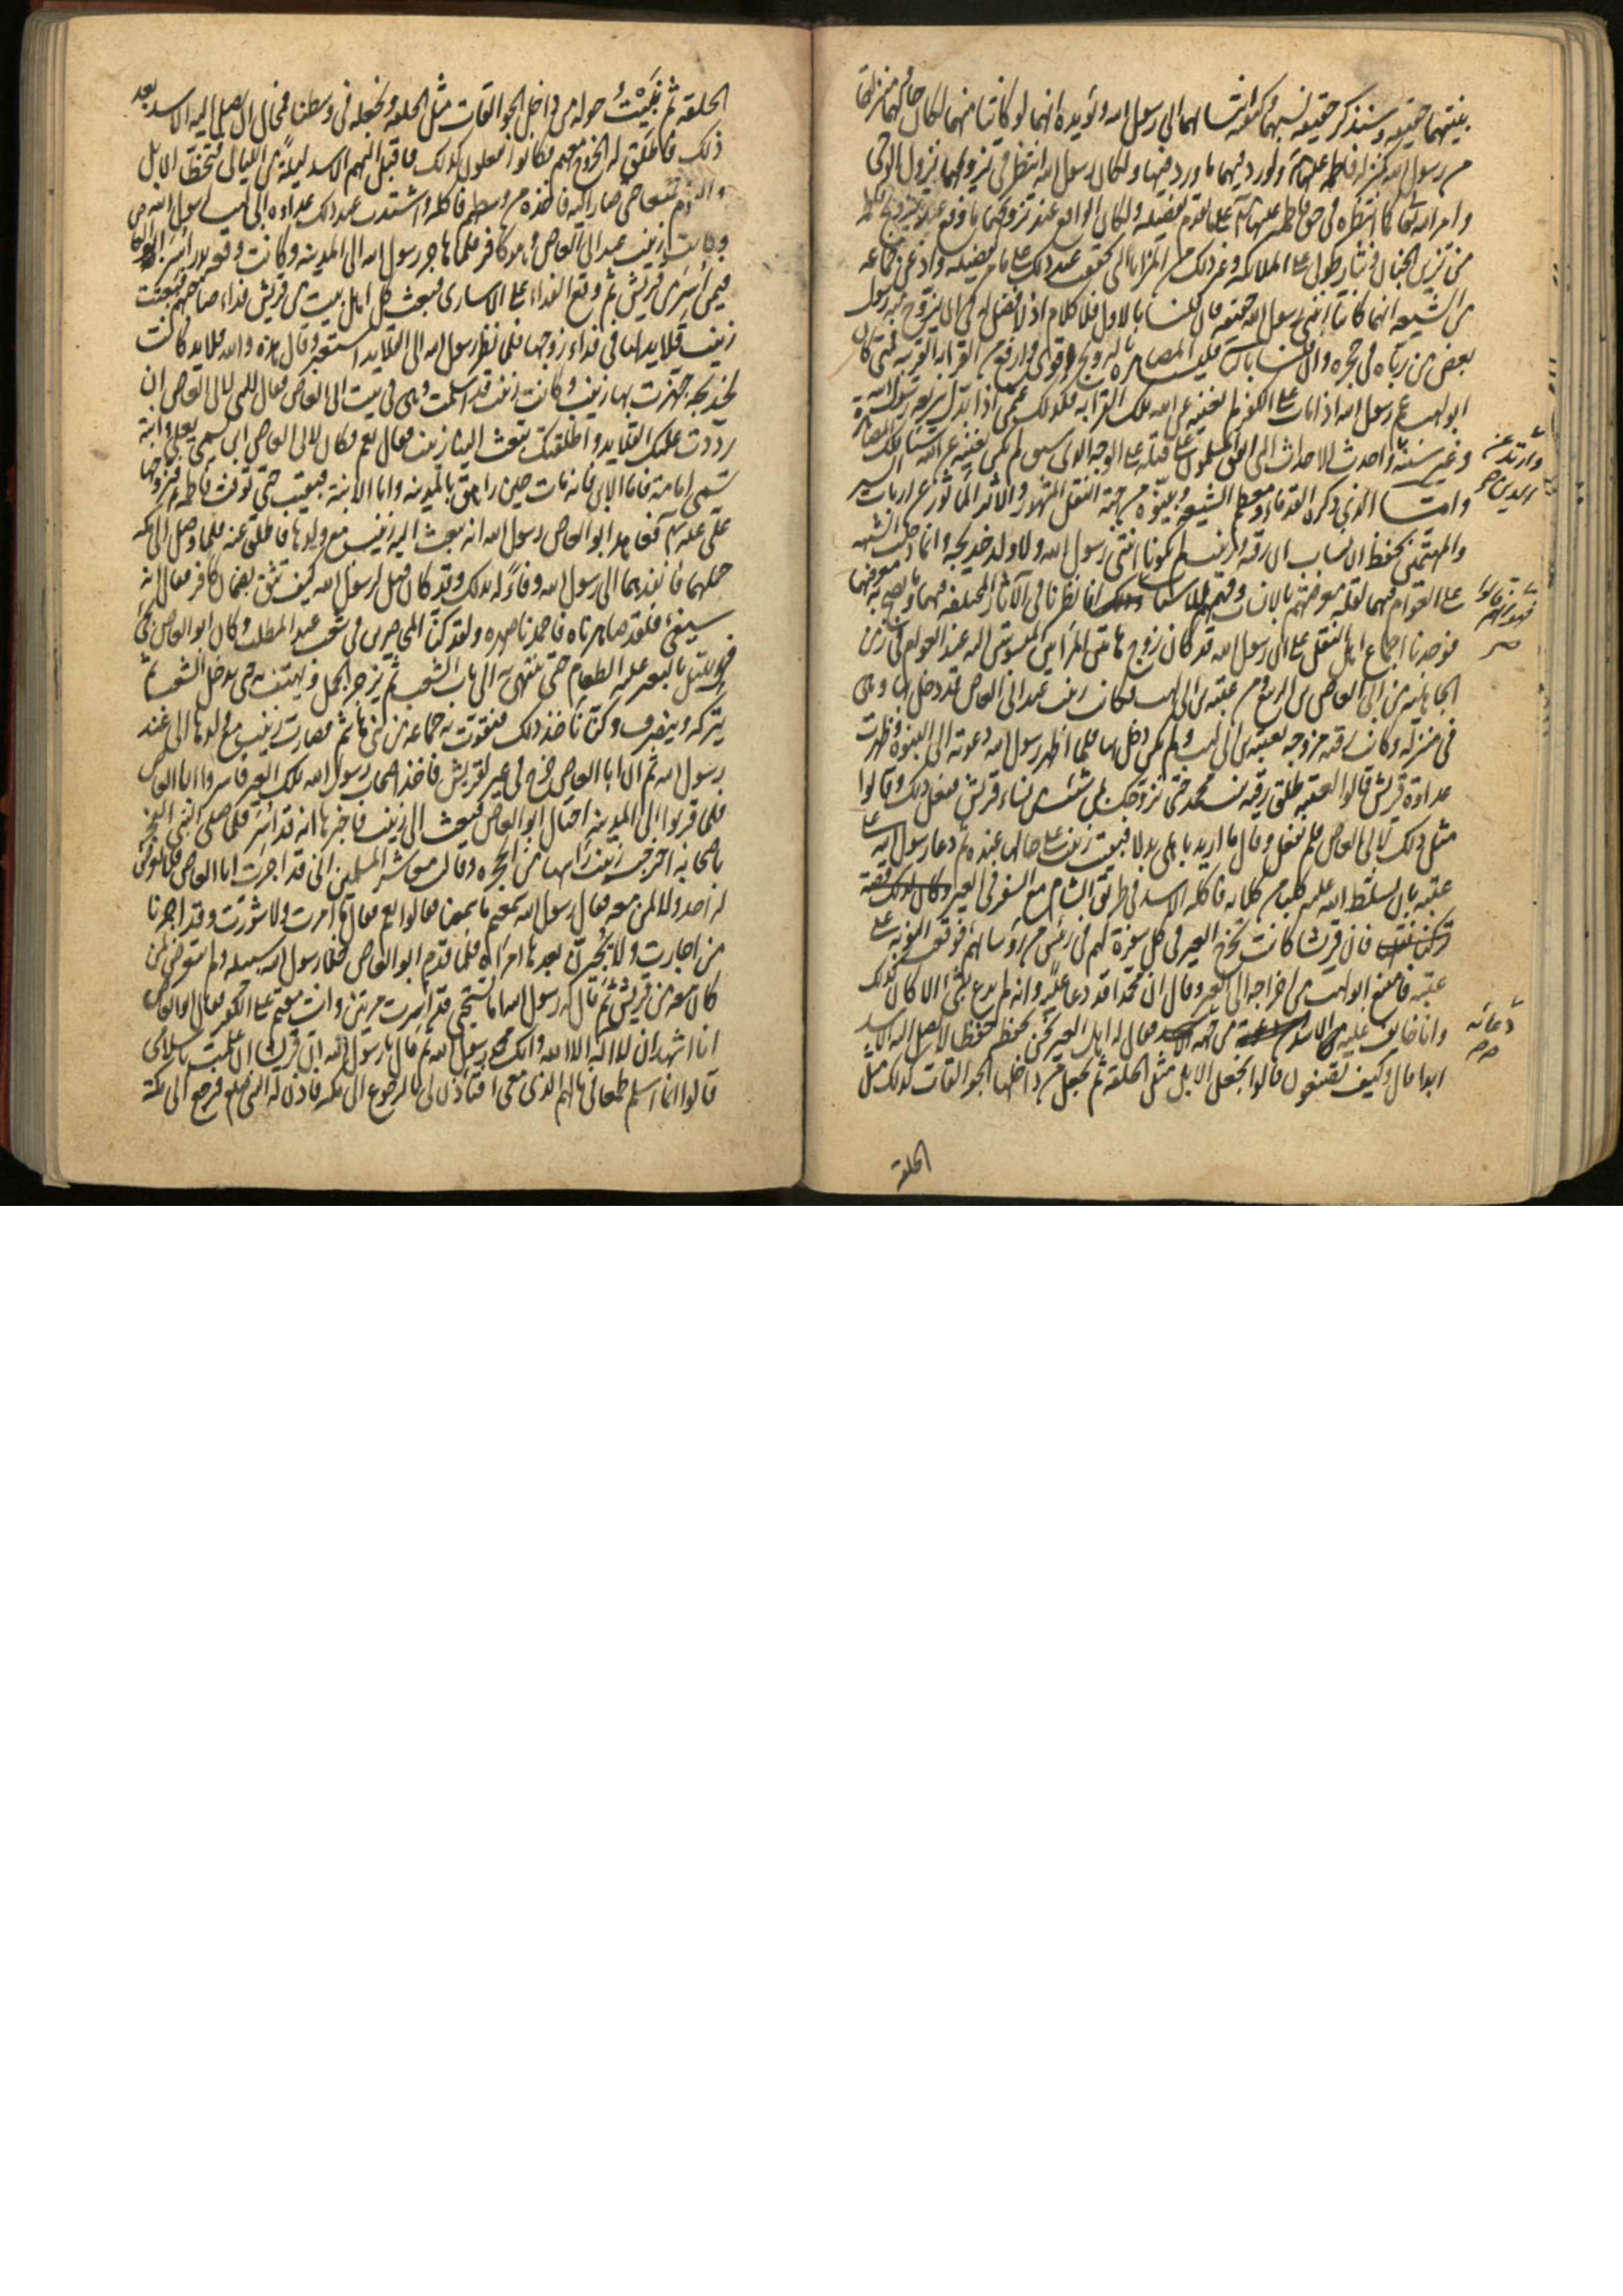 بنتيهما حقيقة وسنذكر حقيقة نسبهما وكيفية انتسابهما الى رسول الله ويؤيده انهما لو كانتا منهما لكان حالهما منزلتهما
من رسول الله كمنزلة فاطمة عليها ولورد فيهما ما ورد فيها ولكان رسول الله انتظر في تزويجهما نزول الوحي
وامر الله تعالى كما انتظره في حق فاطمة عليها على ما تقدم تفصيله ولكان الواقع عند تزويجهما ما وقع عند تزويج فاطمة
من تزيين الجنان ونثار طوبى على الملائكة وغير ذلك من المزايا التي تحققت عند ذلك على ما مر تفصيله وادعى جماعة
من الشيعة انهما كانتا ابنتي رسول الله حقيقة فان قلنا بالاول فلا كلام اذ لا فضل له في ان يتزوج رسول
بعض من رباه في حجره وان قلنا بالثاني فليست المصاهرة بالتزويج اقوى وارفع من القرابة القريبة فمتى كان
ابو لهب عم رسول الله اذا مات على الكفر لم تغنيه عن الله تلك القرابة فكذلك عثمان اذا بدل شريعة رسول الله
وغير سنته واحدث الاحداث التي اتفق المسلمون على قتله على الوجه الذي سبق لم تكن تغنيه عن الله شيئا تلك المصاهرة
وارتد عن الدين صح
واما الذي ذكره القدماء ومعظم الشيعة وبينوه من جهة النقل المشهور والاثر الماثور عن ارباب السير
والمهتمين بحفظ الانساب ان رقية وزينب لم تكونا ابنتي رسول الله ولا ولد خديجة وانما دخلت الشبهة
على العوام فيهما لقلة معرفتهم بالانساب وفهمهم للاسباب وذلك انا نظرنا في الآثار المختلفة فيهما وما يصح به معرفتهما
فوجدنا اجماع اهل النقل على ان رسول الله قد كان زوج هاتين المراتين المنسوبتين اليه عند العوام في زمن
الجاهلية من ابي العاص بن الربيع ومن عتبة بن ابي لهب فكانت زينب عند ابي العاص قد دخل بها وهي
في منزله وكانت رقية مزوجة لعتبة بن ابي لهب ولم يكن دخل بها فلما اظهر رسول الله دعوته الى النبوة وظهرت
عداوة قريش قالوا لعتبة طلق رقية بنت محمد حتى نزوجك بمن شئت من نساء قريش ففعل ذلك وقالوا
مثل ذلك لابي العاص فلم يفعل وقال ما اريد باهلي بدلا فبقيت زينب على حالها عنده ثم دعا رسول الله على
عتبة بان يسلط الله عليه كلبا من كلابه فاكله الاسد في طريق الشام مع السفر في العير وكان لذلك قصة
فان قريشا كانت تخرج العير في كل سفرة لهم في رئيس من رؤسائهم فوقعت النوبة على
عتبة فامتنع ابو لهب من اخراجه الى العير وقال ان محمدا قد دعا عليه وانه لم يدع بشئ الا كان كذلك
وانا خائف عليه من الاسد من جهة فقال له اهل العير نحن نحفظه حفظا لا يصل اليه الاسد
دعائه صح
ابدا قال وكيف تصنعون قالوا نجعل الابل مثل الحلقة ثم نجعل من داخلها الجوالقات كذلك مثل
الحلقة
الحلقة ثم نبيت حوله من داخل الجوالقات مثل الحلقة ونجعله في وسطنا فمحال ان يصل اليه الاسد بعد
ذلك فاطلق له الخروج معهم فكانوا يفعلون كذلك فاقبل اليهم الاسد ليلة من الليالي فتخطى الابل
والقوم حتى صار اليه فاخذه من وسطهم فاكله واشتدت عند ذلك عداوة ابي لهب لرسول الله ص
وكانت زينب عند ابي العاص وهو كافر فلما هاجر رسول الله الى المدينة وكانت وقعة بدر اسر ابو العاص
فيمن اسر من قريش ثم وقع الفداء على الاسارى فبعث كل اهل بيت من قريش فداء صاحبهم فبعثت
زينب قلايدها في فداء زوجها فلما نظر رسول الله الى القلايد استعبر وقال هذه والله قلايد كانت
لخديجة جهزت بها زينب وكانت زينب قد اسلمت وهي في بيت ابي العاص فقال النبي لابي العاص ان
رددت عليك القلايد واطلقتك تبعث الينا زينب فقال نعم وكان لابي العاص ابن يسمى بعلي وابنة
تسمى امامة فاما الابن فانه مات حين راهق بالمدينة واما الابنة فبقيت حتى توفيت فاطمة فتزوجها
علي عليه السلام فعاهد ابو العاص رسول الله انه يبعث اليه زينب مع ولدها فاطلق عنه فلما وصل الى مكة
حملهما فانفذهما الى رسول الله وفاء له بذلك وقد كان قيل لرسول الله كيف تثق بضمان كافر فقال انه
سيفي فلقد صاهرناه فاحمدنا صهره ولقد كنا المحاصرين في شعب عبد المطلب وكان ابو العاص يجئ
بالليل بالبعير عليه الطعام حتى ينتهي به الى باب الشعب ثم يزجر الجمل ويهتف به حتى يدخل الشعب ثم
يتركه وينصرف وكنا ناخذ ذلك فنتقوت به جماعة من بني هاشم فصارت زينب مع ولدها الى عند
رسول الله ثم ان ابا العاص خرج في عير لقريش فاخذ اصحاب رسول الله تلك العير فاسروا ابا العاص
فلما قربوا الى المدينة احتال ابو العاص فبعث الى زينب فاخبرها انه قد اسر فلما صلى النبي الفجر
باصحابه اخرجت زينب راسها من الحجرة وقالت معاشر المسلمين اني قد اجرت ابا العاص فلا يعرض
له احد ولا لمن معه فقال رسول الله سمعتم ما سمعنا فقالوا نعم فقال ما امرت ولا شورت وقد اجرنا
من اجارت ولا يجيرن بعدها امراة فلما قدم ابو العاص فخلا رسول الله سبيله ولم يتعرض لمن
كان معه من قريش ثم قال له رسول الله اما تستحي قد اسرت مرتين وانت مقيم على الكفر فقال ابو العاص
انا اشهد ان لا اله الا الله وانك محمد رسول الله ثم قال يا رسول الله ان قريشا ان علمت باسلامي
قالوا انما اسلم طمعا في مالهم الذي معي افتأذن لي بالرجوع الى مكة فاذن له النبي صلعم فرجع الى مكة